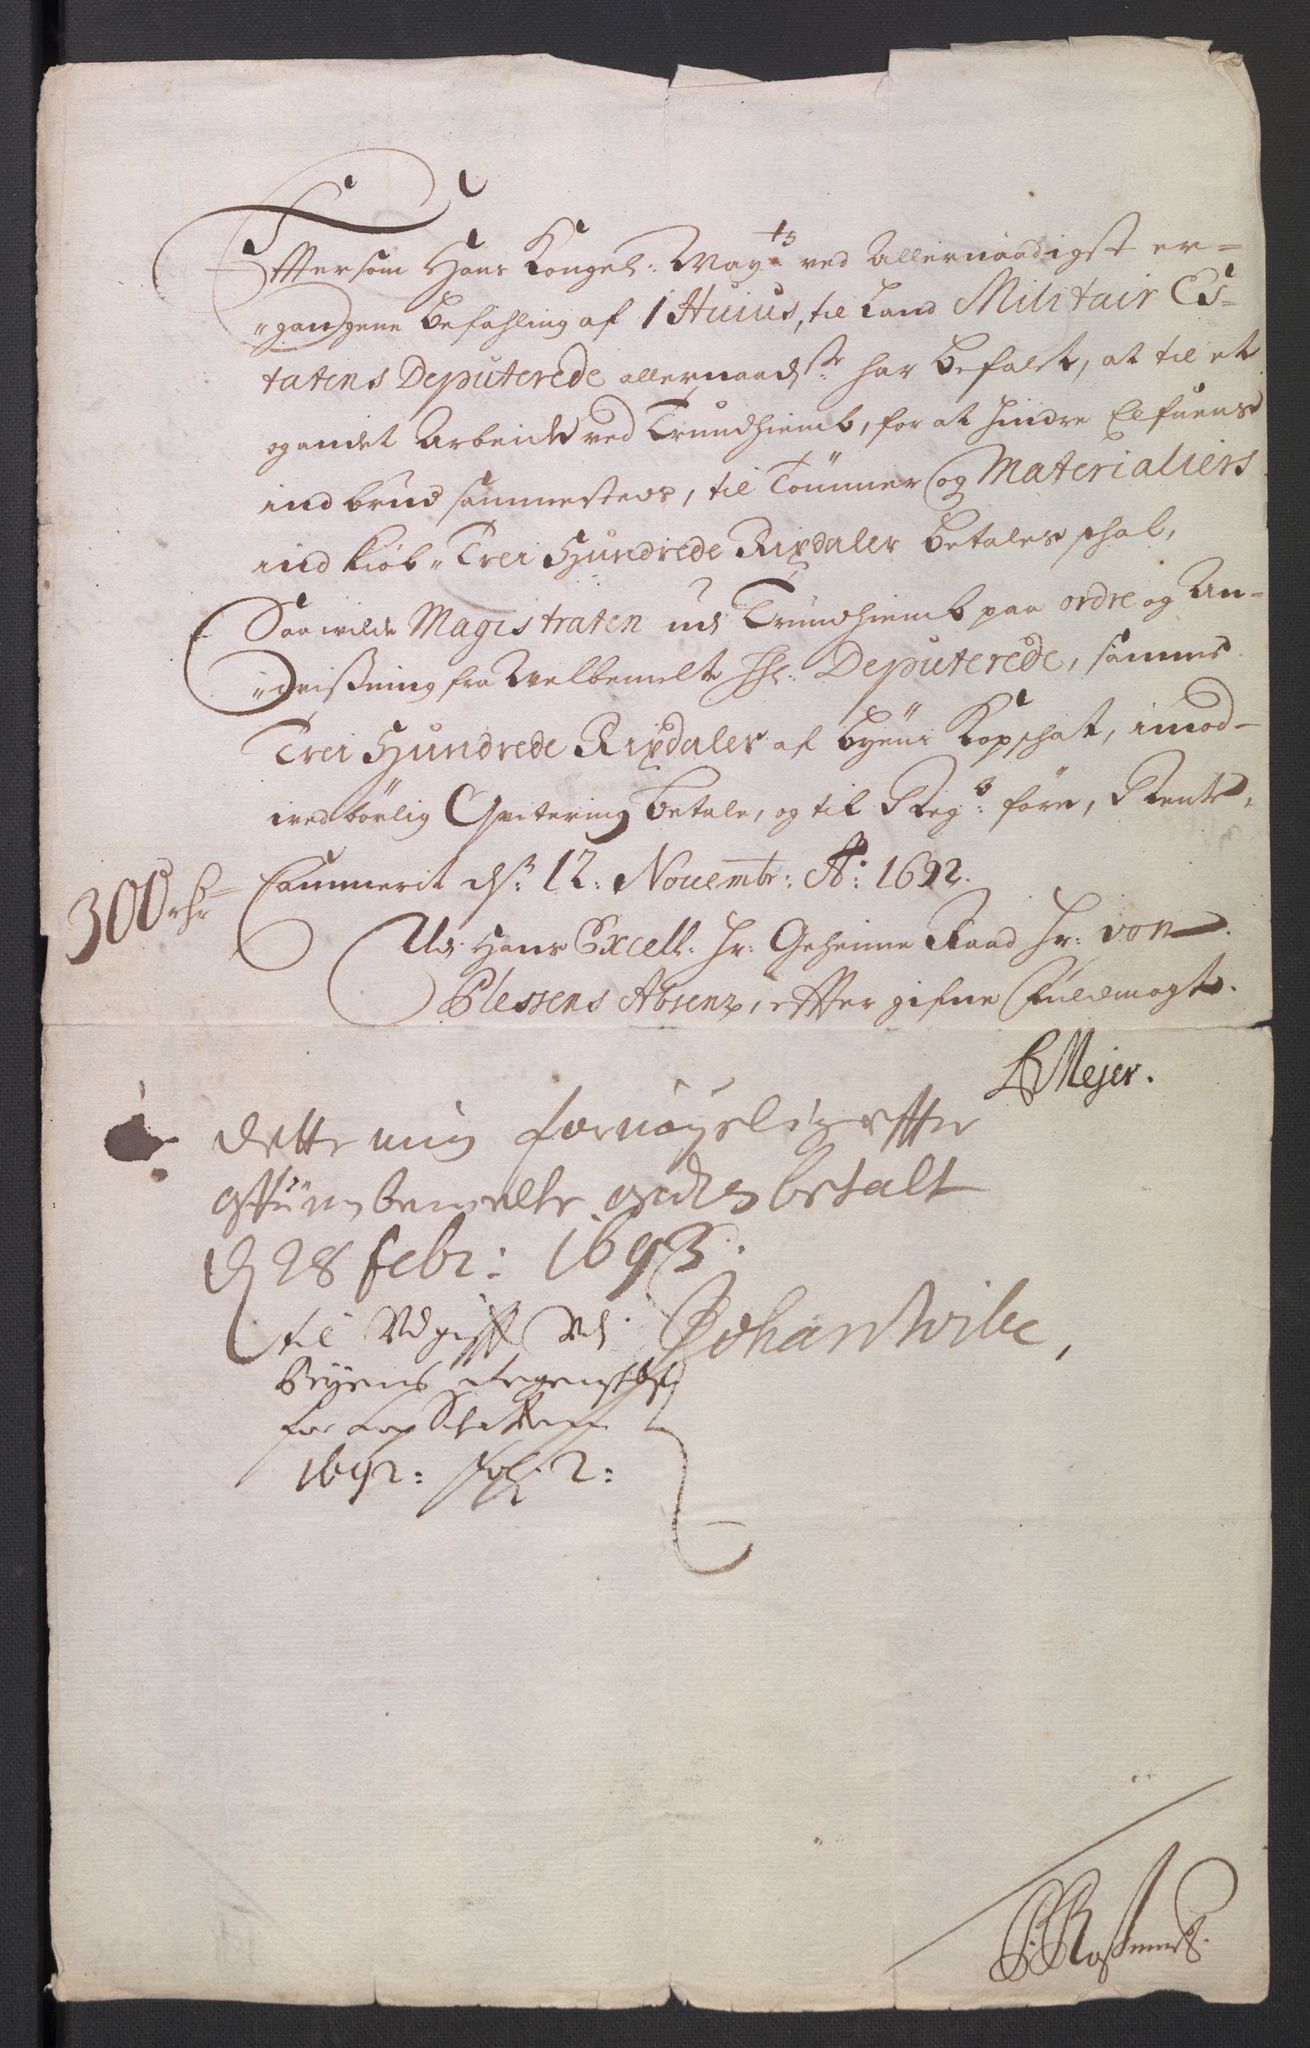 Effter som Hans Kongel: May:ts ved Allernaadigst er=
gangene Befahling af 1 Huius, til Land Militair Es=
tatens Deputerede allernaadste har befalet, at til et
og andet Arbeide ved Trundhiemb, for at hindre Elfuens
indbrud sammesteds, til Tömmer og Materialiers
ind kiöb, Trei Hundrede Rixdaler betales schal,
Saa wilde Magistraten udi Trundhiemb paa ordre og An=
vißning fra Welbemelte HH: Deputerede, samme
Trei Hundrede Rixdaler af Byens Kopschat, imod
ved börlig Qvitering betale, og til Regs: före, Rente
Cammerit d: 12: Novembr: Ao: 1692.
300 rdr
Udi Hans Excell: Hr: Geheime Raad Hr: von
Plessens Absenz, effter gifne Fuldmagt.
Mejer.
Dette mig fornøyelig effter
betalt
d 28 febr: 1693.
Johan Wibe,
til Udgifft udi
Byens Regenskab
for Kop Schatten
1692: fol: 2: